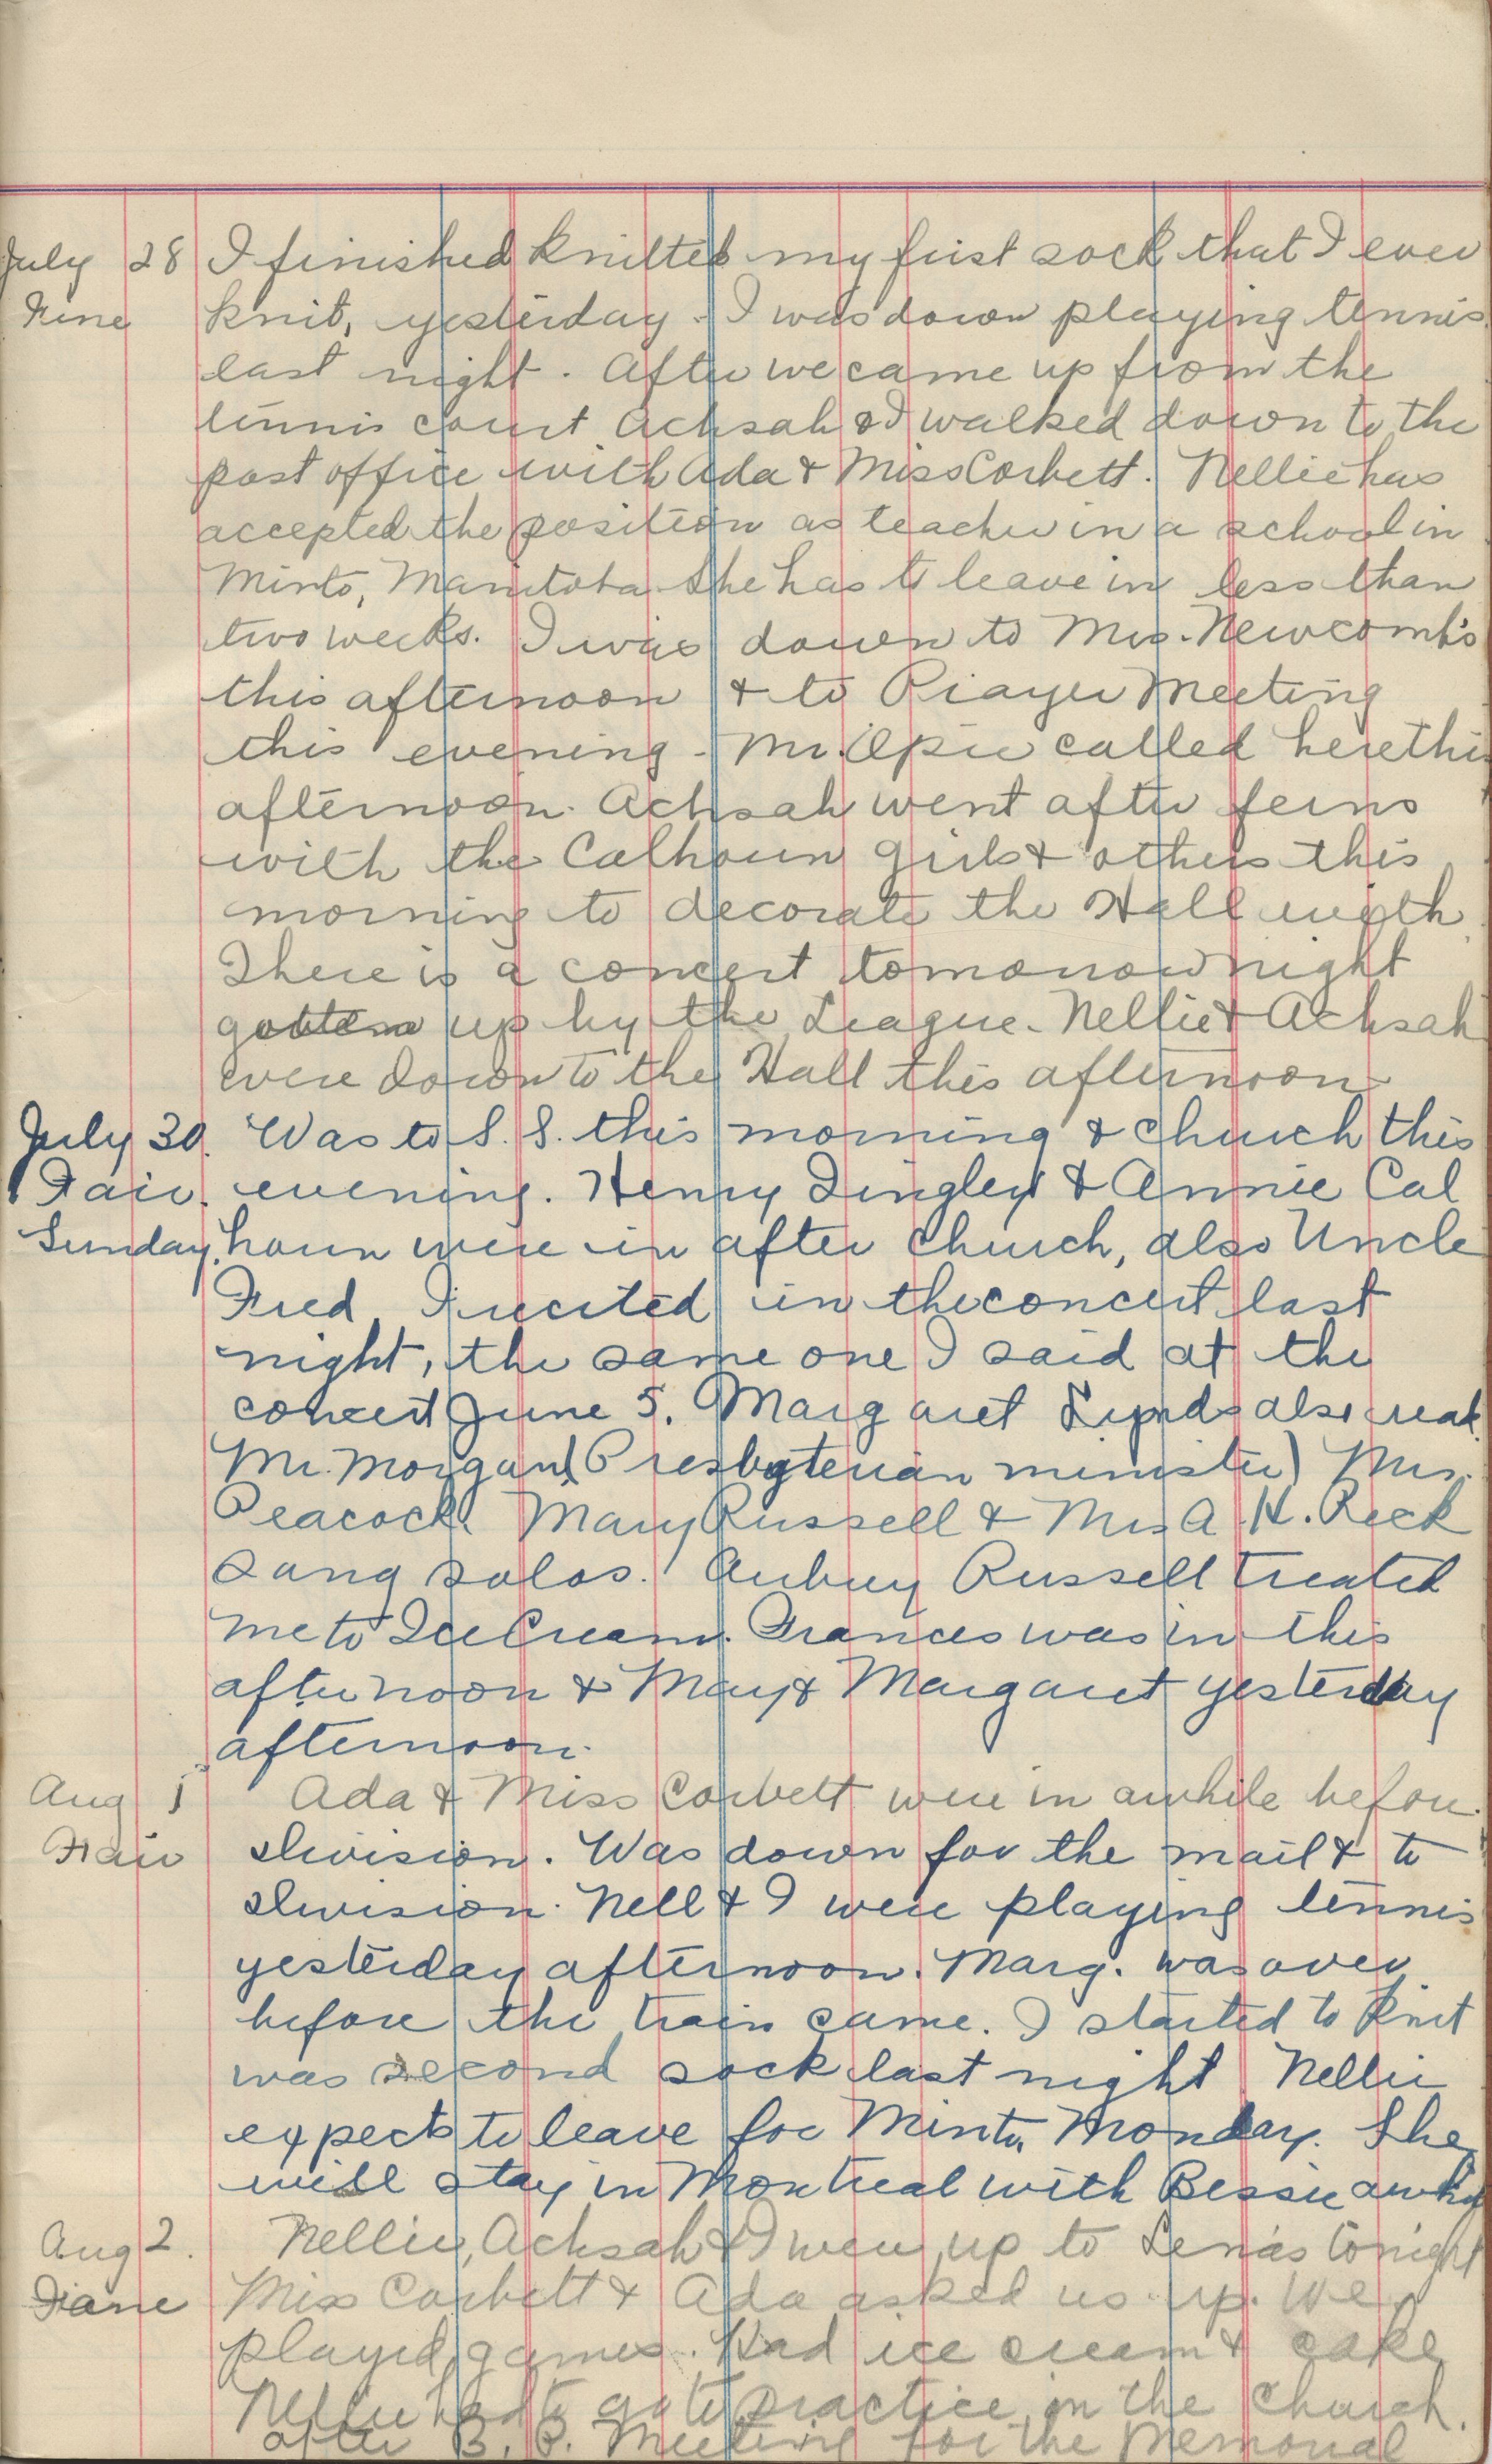 July 28 I finished knitted my first sock that I ever
Fine knit, yesterday - I was down playing tennis
last night. After we came up from the
tennis court Achsah & I walked down to the
post office with Ada & Miss Corbett. Nellie has
accepted the position as teacher in a school in
Minto, Manitoba She has to leave in less than
two weeks. I was down to Mrs. Newcomb's
this afternoon & to Prayer Meeting
this evening - Mr. Opie called here this
afternoon. Achsah went after ferns
with the Calhoun girls & others this
morning to decorate the Hall with
There is a concert tomorrow night
gotten up by the League. Nellie & Achsah
were down to the Hall this afternoon
July 30. Was to S. S. this morning & church this
Fair. evening. Henry Dingley & Annie Cal
Sunday. houn were in after church, also Uncle
Fred I recited in the concert last
night, the same one I said at the
concert June 5. Margaret also read
Mr. Morgan (Presbyterian minister) Mrs.
Peacock, Mary Russell & Mrs A. H. Peck
sang solos. Aubrey Russell treated
me to Ice Cream. Frances was in this
afternoon & Mary & Margaret yesterday
afternoon.
Aug 1 Ada & Miss Corbett were in awhile before
Fair division. Was down for the mail & to
division. Nell & I were playing tennis
yesterday afternoon. Marg. was over
before the train came. I started to knit
was second sock last night Nellie
expects to leave for Minto Monday. She
will stay in Montreal with Bessie awhile
Aug 2. Nellie, Achsah & I were up to Lena's tonight
Fiane Miss Corbett & Ada asked us up. We
played games. Had ice cream & cake
Nellie had to go to practice in the church.
after B. P. Meeting for the Memorial